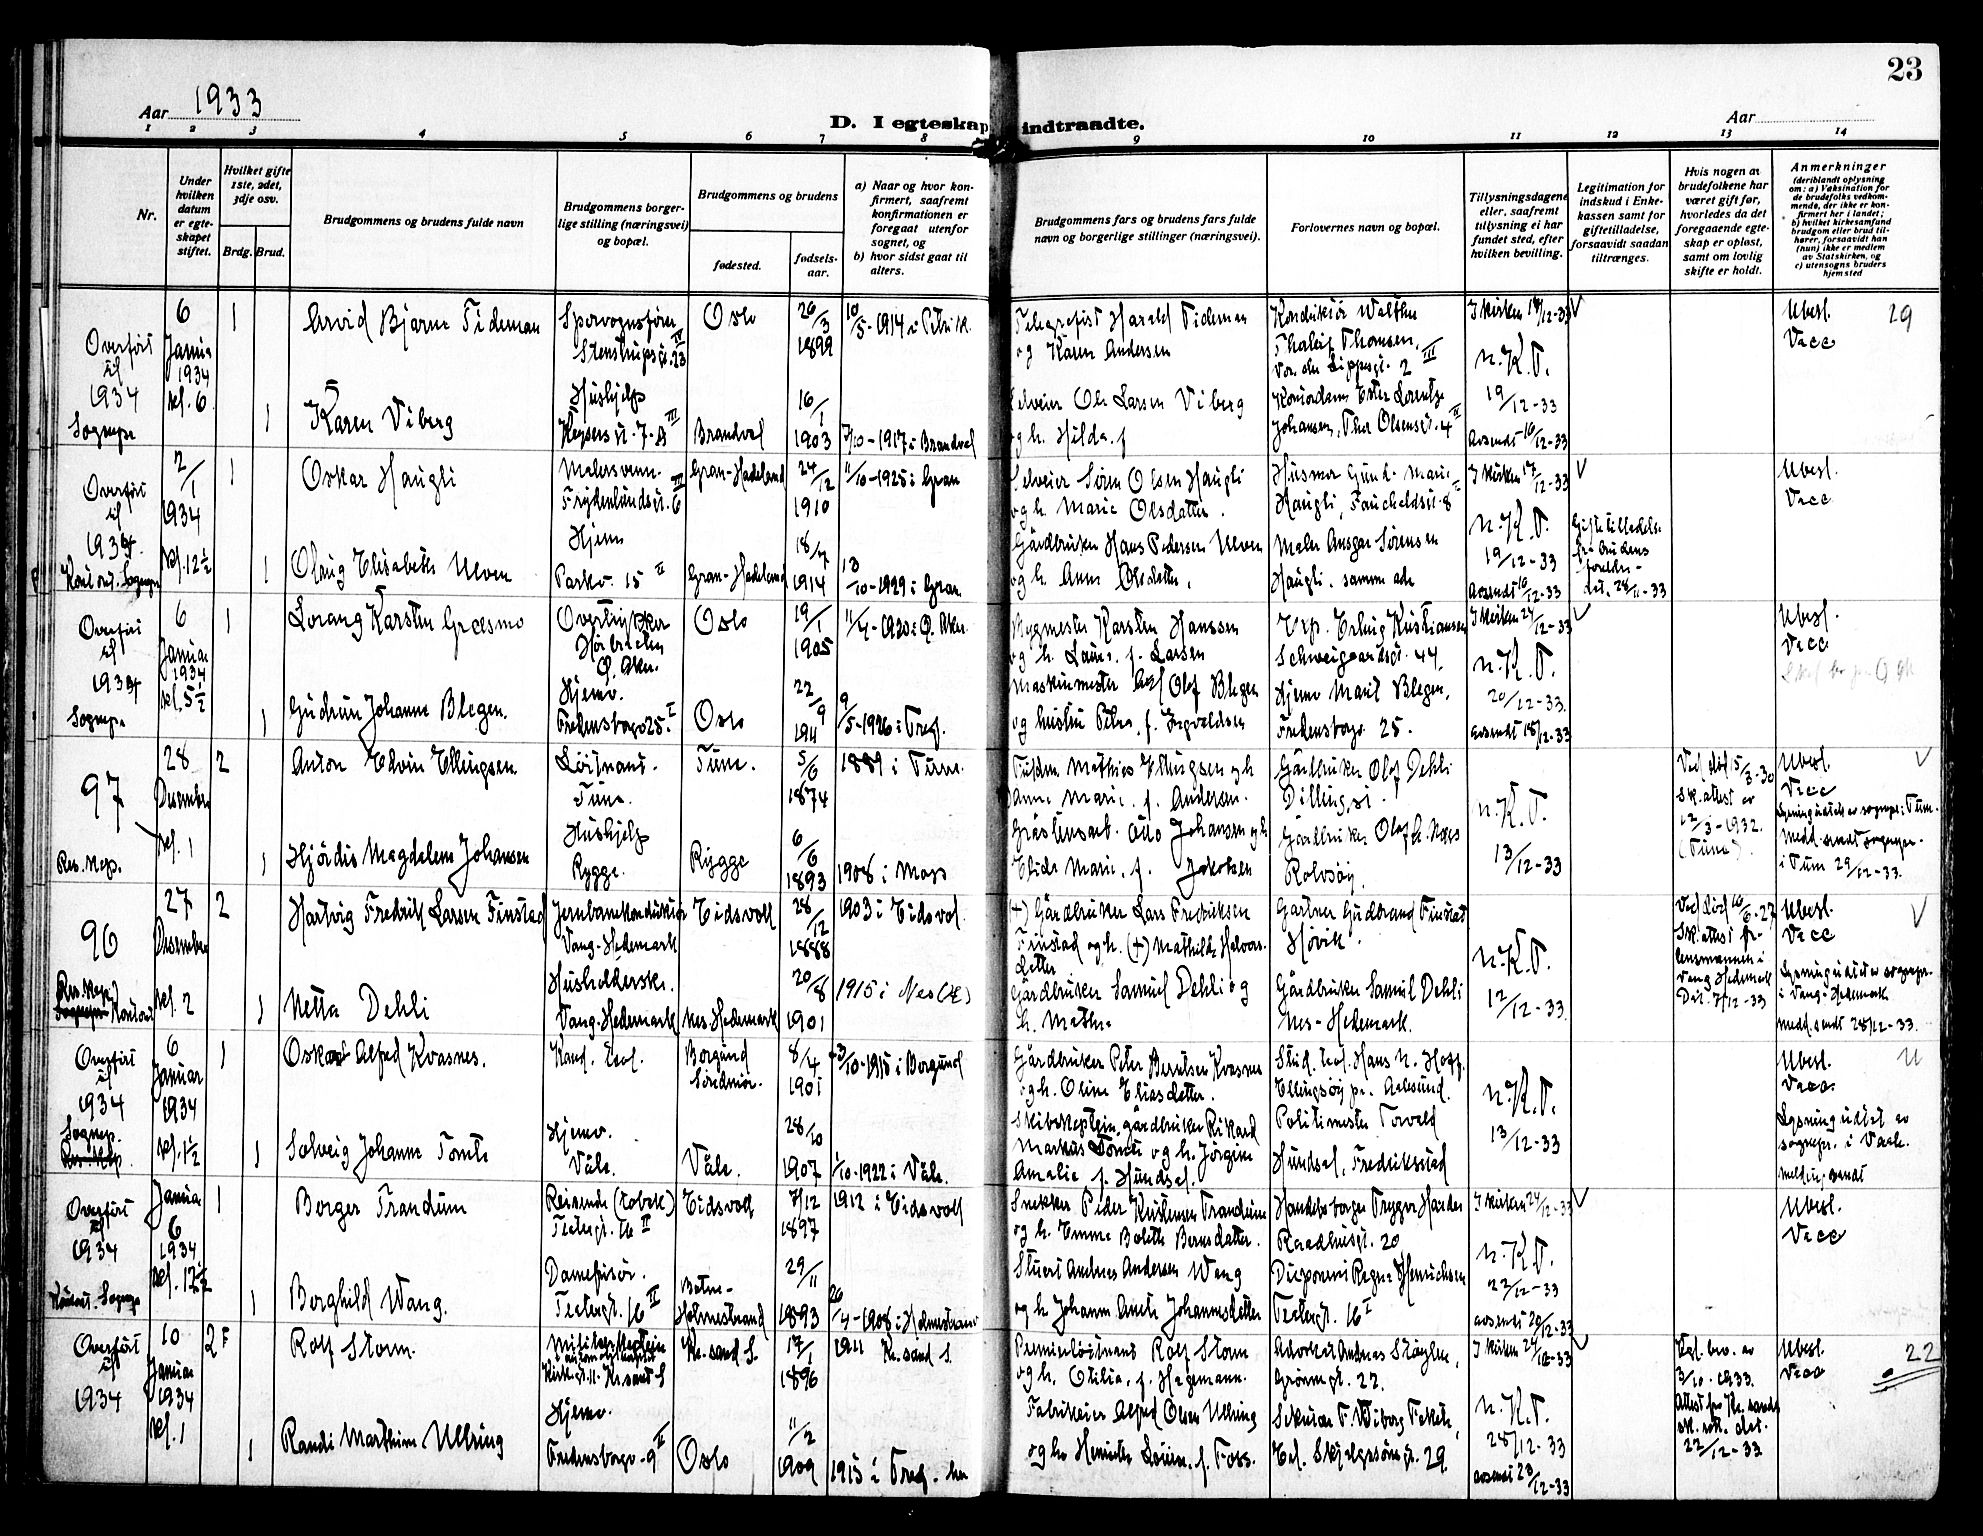 23
Aar 1933
D. I egteskap indtraadte.
Aar
1 2 3 4 5 6 7 8 9 10 11 12 13 14
Nr.
Under hvilken datum er egteskapet stiftet.
Hvilket gifte 1ste, 2det, 3dje osv.
Brdg. Brud.
Brudgommens og brudens fulde navn
Brudgommens borgerlige stilling (næringsvei) og bopæl.
Brudgommens og brudens
fødested.
fødselsaar.
a) Naar og hvor konfirmert, saafremt konfirmationen er foregaat utenfor sognet, og
b) hvor sidst gaat til alters.
Brudgommens fars og brudens fars fulde navn og borgerlige stillinger (næringsvei).
Forlovernes navn og bopæl.
Tillysningsdagene eller, saafremt tillysning ei har fundet sted, efter hvilken bevilling.
Legitimation for indskud i Enkekassen samt for giftetilladelse, forsaavidt saadan tiltrænges.
Hvis nogen av brudefolkene har været gift før, hvorledes da det foregaaende egteskap er opløst, samt om lovlig skifte er holdt.
Anmerkninger (deriblandt oplysning om: a) Vaksination for de brudefolks vedkommende, der ikke er konfirmert her i landet; b) hvilket kirkesamfund brudgom eller brud tilhører, forsaavidt han (hun) ikke er medlem av Statskirken, og c) utensogns bruders hjemsted
Overført til 1934
6 Januar 1934 kl. 6
1
Arvid Bjarne Tideman
Sporvognsfører Stenstrupsgt. 23 IV
Oslo
26/3 1899
10/5-1914 i Petri k.
Telegrafist Harald Tideman og Karen Andersen
Konduktør Walther Thaleif Thomsen, Vor. den Lippesgt. 2 III
I kirken 17/12-33
n. K. T.
Ubesl. Vacc
29
Sognepr
1
Karen Viberg
Hushjelp Keysersgt. 7. B III
Brandval
16/1 1903
7/10-1917 i Brandval
Selveier Ole Larsen Viberg og h. Hilda f
Kontordame Ester Lorentze Johansen, Thor Olsensgt. 4 II
19/12-33
avsendt 16/12-33
Overført til 1934
2/1 1934 kl. 12½
1
Oskar Haugli
Malersvenn. Frydenlundsgt. 6 III
Gran-Hadeland
24/12 1910
11/10-1925 i Gran
Selveier Søren Olsen Haugli og h. Marie Olsdatter.
Husmor Gund. Marie Haugli, Faucheldsgt. 8
I kirken 17/12-33
n. K. T.
Ubesl. Vacc
Kontort. Sognepr
1
Olaug Elisabeth Ulven
Hjemv Parkv. 15 II
Gran-Hadeland
18/7 1914
13/10-1929 i Gran
Gårdbruker Hans Pedersen Ulven og h. Anne Olsdatter.
Maler Ansgar Sørensen Haugli. samme adr
19/12-33
avsendt 16/12-33
Giftetilladelse fra brudens foreldre det. 28/11-33
Overført til 1934
6 Januar 1934 kl. 5½
1
Lorang Karsten Græsmo
Overtrykker Ø. Aker.
Oslo
19/1 1905
11/4-1920 i Ø. Aker
Bygmester Karsten Hanssen og h. Laura f. Larsen
Exp. Erling Kristiansen Schweigaardsgt. 44.
I kirken 24/12-33
n. K. T.
Ubesl. Vacc
Sognepr
1
Gudrun Johanne Blegen.
Hjemv. Fredensborgv 25. I
Oslo
22/9 1911
9/5-1926 i Tref.
Maskinmester Olof Blegen og hustru Petra f. Ingvaldsen
Hjemv Marit Blegen, Fredensborgv 25.
20/12-33.
avsendt 18/12-33
97
28 Desember kl. 1
2
Anton Edvin Ellingsen
Løitnant. Tune.
Tune.
5/6 1874
1889 i Tune.
Mathias Ellingsen og h Anne Marie f. Andersen.
Gårdbruker Olof Dehli Dillingøi.
n. K. T.
Ved død 15/3-30 Sk. attest av 12/3-1932. (Tune).
Ubesl. Vacc
Lysning utstet av sognepr. i Tune. Medd. sendt sognepr. i Tune 29/12-33.
Res. kap.
1
Hjørdis Magdalene Johansen
Hushjelp Rygge.
Rygge
6/6 1893
1908 i Moss
Gråstensarb. Otto Johansen og h. Elida Marie f. Jakobsen
Gårdbruker Olaf H. Moss Rolvsøy.
13/12-33
96
27 Desember kl. 2
2
Hartvig Fredrik Larsen Finstad
Jernbanekonduktør Vang-Hedemark
Eidsvoll
28/12 1888
1903 i Eidsvol.
(+) Gårdbruker Lars Fredriksen Finstad og h. (+) Mathilde Halvorsdatter
Gartner Gudbrand Finstad Høvik.
n. K. T.
Ved død 10/6-27 Sk. attest fr. lensmannen i Vang Hedemark Dat. 7/12-33
Ubesl. Vacc
Lysning utstet av sognepr. i Vang-Hedemark medd. sendt 28/12-33.
Res. kap. Kontoret
1
Netta Dehli
Husholderske. Vang-Hedemark
Nes-Hedemark
20/8 1901
1915 i Nes (H)
Gårdbruker Samuel Dehli og h. Mathea
Gårdbruker Samuel Dehli Nes-Hedemark.
12/12-33
Overført til 1934
6 Januar 1934 kl. 1½
1
Oskar Alfred Kvasnes.
Kand. teol.
Borgund Søndmør.
8/4 1901
3/10-1915 i Borgund
Gårdbruker Peter Berntsen Kvasnes og h. Oline Eliasdatter.
Stud. teol. Hans N. Hoff. Ellingsøy pr. Aalesund.
n. K. T.
Ubesl. Vacc.
Lysning utstet av sognepr. i Våle. melding sendt
Sognep. Res. kap.
1
Solveig Johanne Tomte
Hjemv. Våle.
Våle.
28/10 1907
1/10-1922 i Våle.
Skibskaptein, gårdbruker Rikard Markus Tomte og h. Jørgine Amalie f. Hundsal.
Politimester Torvald Hundsal, Fredrikstad
13/12-33
Overført til 1934
Januar 6 1934 kl. 12½
1
Borger Trandum
Reisende (tobak) Tostrgt. 16 II
Eidsvoll
7/12 1897
1912 i Eidsvoll
Snekker Peder Kristensen Trandum og h. Emma Bolette Berntsdatter.
Handelsborger Trygve Harder Raadhusgt. 20
I kirken 24/12-33
n. K. T.
Ubesl. Vacc
Kontort. Sognepr
1
Borghild Wang.
Damefrisør. Tostrgt. 16 II
Botne-Holmestrand
29/11 1893
26/4-1908 i Holmestrand
Stuert Andreas Andersen Wang og h. Johanne Anette Johannesdatter
Ragna Henrichsen 16 I
22/12-33
avsendt 20/12-33
Overført til 1934
10 Januar 1934 kl. 1
2 F
Rolf Storm.
Kirkegt. 11. Kr.sand S
Kr. sand S.
17/1 1896
1911 Kr. sand S.
Premierløitnant Rolf Storm og h. Otilia f. Hagemann.
Advokat Andreas Støylen, Grønnegt. 22.
I kirken 24/12-33
n. K. T.
Egt. bev. av 3/10-1933. Attest fra Kr. sand sk. rett. dat. 22/12-33
Ubesl. Vacc
22
1
Randi Marthine Ullring
Hjemv. Fredensborgv. 9 II
Oslo
11/2 1909
1915 i Tref. her
Fabrikeier Alfred Olsen Ullring og h. Henriette Louise f. Foss.
Sekretær F. Wiborg Eel. Skjelgssøns gt. 29.
28/12-33
avsendt 23/12-33